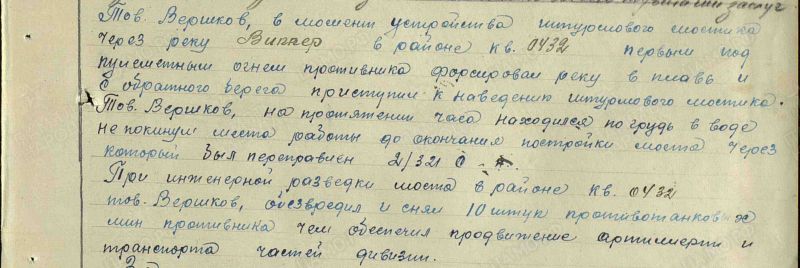 заслуг
Тов. Вершков, в момент устройства штурмового мостика
через реку Виппер в районе кв. 0432 первым под
пулеметным огнем противника форсировал реку в плавь и
с обратного берега приступил к наведению штурмового мостика.
Тов. Вершков, на протяжении часа находился по грудь в воде
не покинул места работы до окончания постройки моста через
который был переправлен 2/321
При инженерной разведки моста в районе кв. 0432
тов. Вершков, обезвредил и снял 10 штук противотанковых
мин противника чем обеспечил продвижение артиллерии и
транспорта частей дивизии.